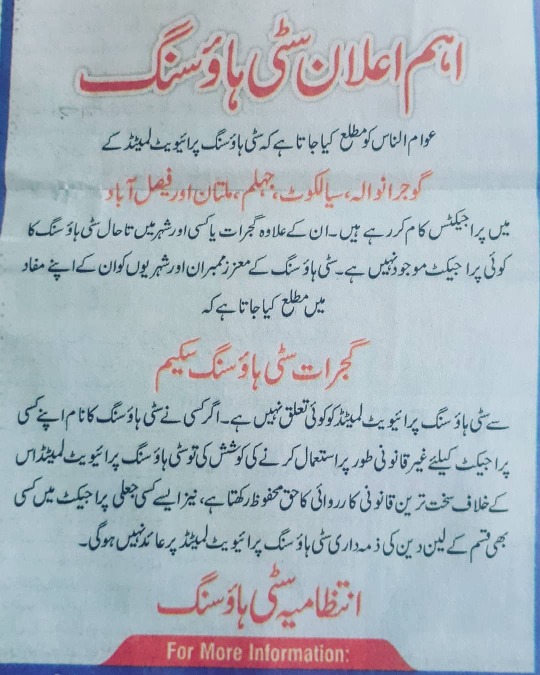 اہم اعلان سٹی ہاؤسنگ
عوام الناس کو مطلع کیا جاتا ہے کہ سٹی ہاؤسنگ پرائیویٹ لمیٹڈ کے
گوجرانوالہ، سیالکوٹ، جہلم، ملتان اور فیصل آباد
میں پراجیکٹس کام کر رہے ہیں۔ ان کے علاوہ گجرات یا کسی اور شہر میں تاحال سٹی ہاؤسنگ کا
کوئی پراجیکٹ موجود نہیں ہے۔ سٹی ہاؤسنگ کے معزز ممبران اور شہریوں کو ان کے اپنے مفاد
میں مطلع کیا جاتا ہے کہ
گجرات سٹی ہاؤسنگ سکیم
سے سٹی ہاؤسنگ پرائیویٹ لمیٹڈ کو کوئی تعلق نہیں ہے۔ اگر کسی نے سٹی ہاؤسنگ کا نام اپنے کسی
پراجیکٹ کیلئے غیر قانونی طور پر استعمال کرنے کی کوشش کی تو سٹی ہاؤسنگ پرائیویٹ لمیٹڈ اس
کے خلاف سخت ترین قانونی کارروائی کا حق محفوظ رکھتا ہے، نیز ایسے کسی جعلی پراجیکٹ میں کسی
بھی قسم کے لین دین کی ذمہ داری سٹی ہاؤسنگ پرائیویٹ لمیٹڈ پر عائد نہیں ہوگی۔
انتظامیہ سٹی ہاؤسنگ
For More Information: